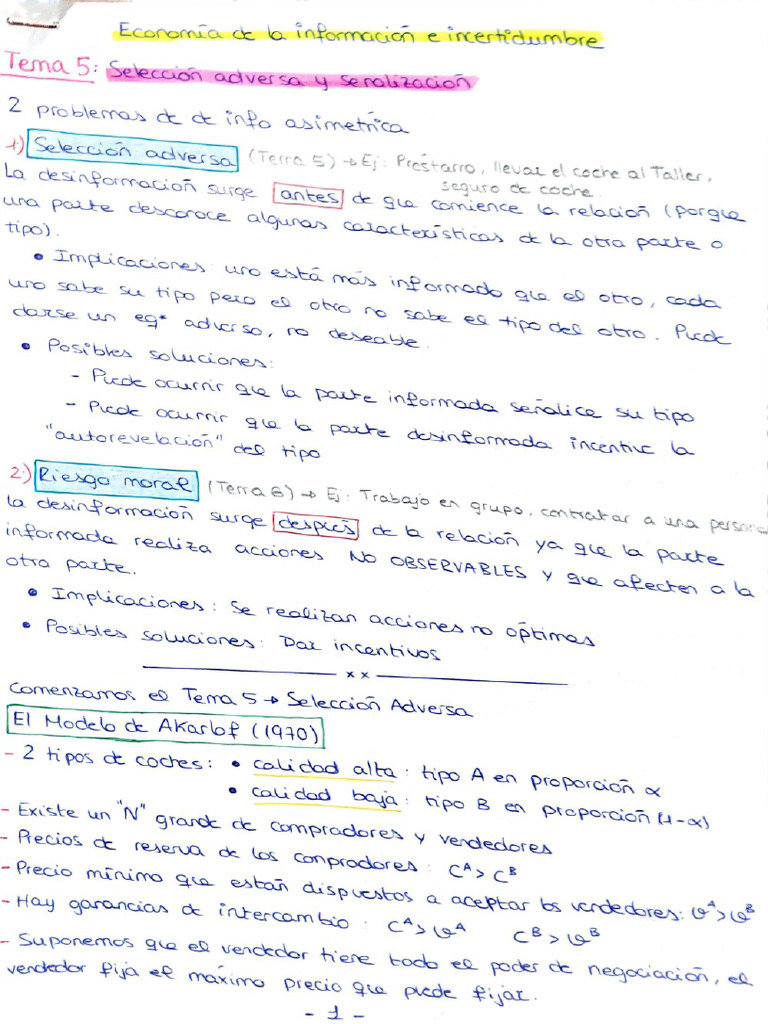 Economía de la información e incertidumbre
Tema 5: Selección adversa y señalización
2 problemas de de info asimetrica
1) Selección adversa (Tema 5) → Ej: Préstamo, llevar el coche al Taller,
seguro de coche.
La desinformación surge antes de que comience la relación (porque
una parte desconoce algunas características de la otra parte o
tipo).
• Implicaciones: uno está más informado que el otro, cada
uno sabe su tipo pero el otro no sabe el tipo del otro. Puede
darse un eqº adverso, no deseable.
• Posibles soluciones:
- Puede ocurrir que la parte informada señalice su tipo
- Puede ocurrir que la parte desinformada incentive la
"autorevelación" del tipo
2) Riesgo moral (Tema 6) → Ej: Trabajo en grupo, contratar a una persona
La desinformación surge después de la relación ya que la parte
informada realiza acciones NO OBSERVABLES y que afecten a la
otra parte.
• Implicaciones: Se realizan acciones no óptimas
• Posibles soluciones: Dar incentivos
x x
Comenzamos el Tema 5 → Selección Adversa
El Modelo de Akarlof (1970)
- 2 tipos de coches: • calidad alta: tipo A en proporción α
• calidad baja: tipo B en proporción (1-α)
- Existe un "N" grande de compradores y vendedores
- Precios de reserva de los compradores: Cᴬ > Cᴮ
- Precio mínimo que están dispuestos a aceptar los vendedores: vᴬ > vᴮ
- Hay garancias de intercambio: Cᴬ > vᴬ Cᴮ > vᴮ
- Suponemos que el vendedor tiene todo el poder de negociación, el
vendedor fija el máximo precio que puede fijar.
- 1 -